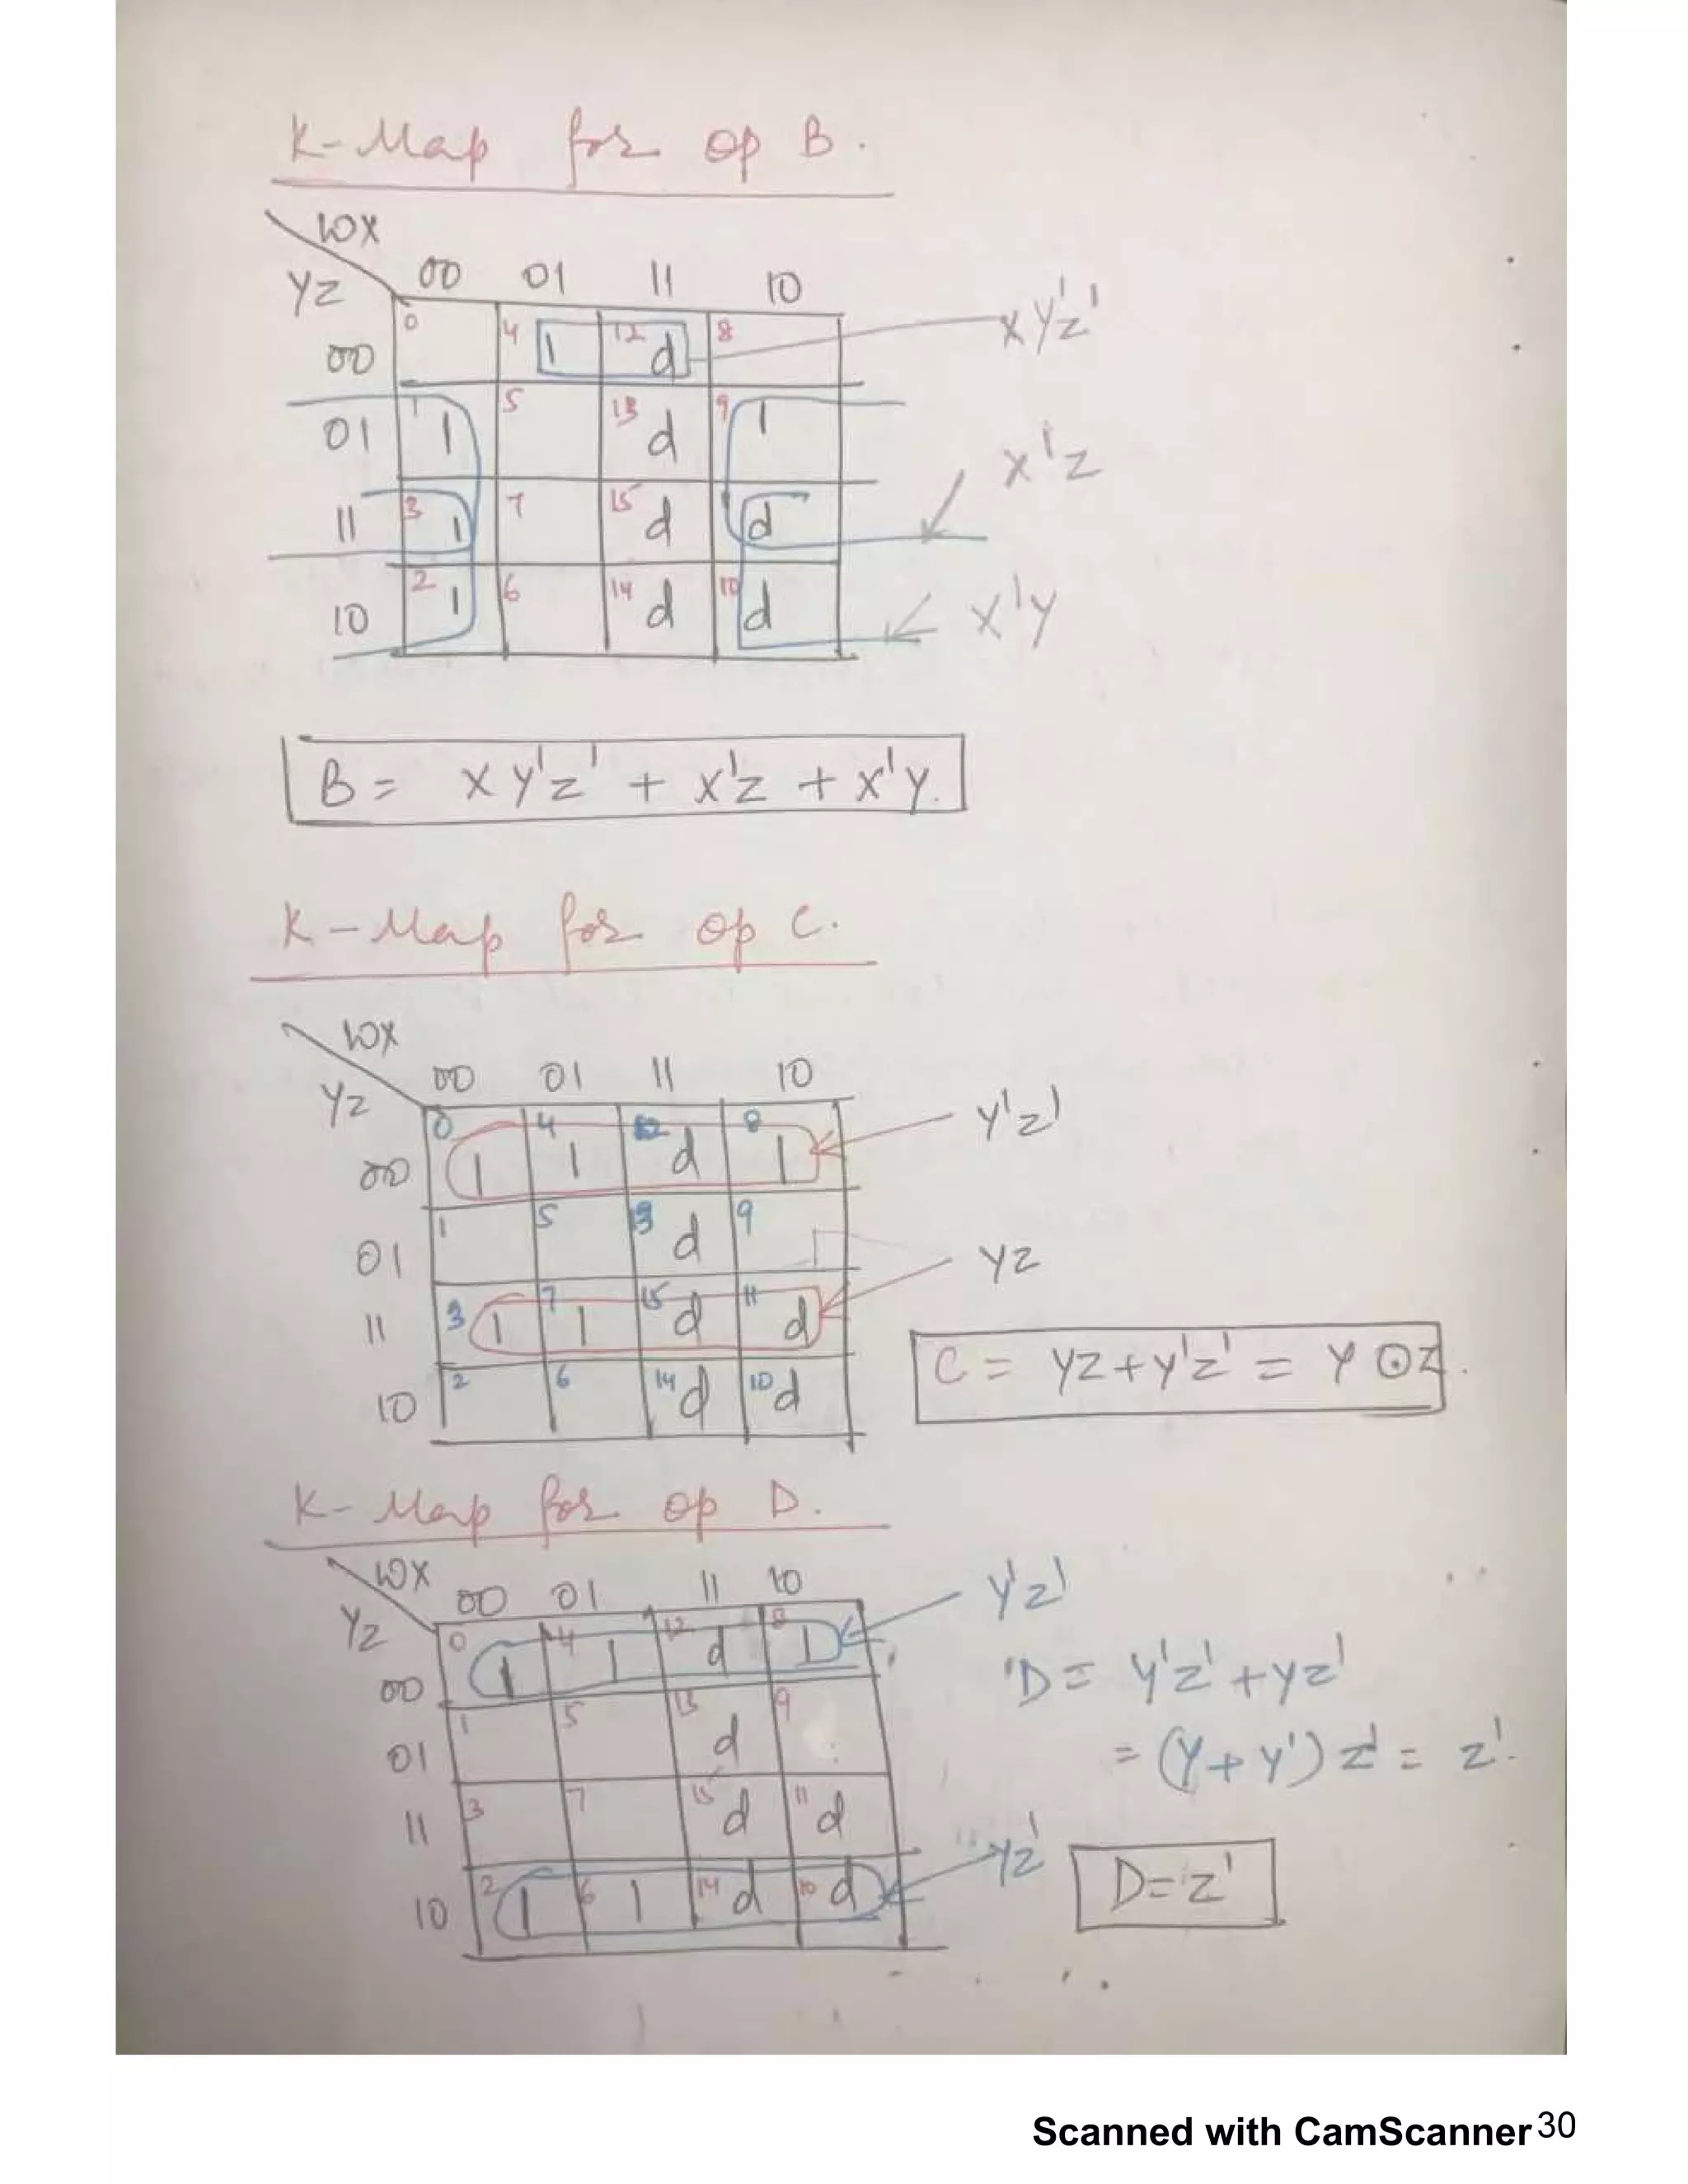 K-Map for op B.
WX
YZ 00 01 11 10
00 0 4 1 12 d 8 XY'Z'
01 1 1 5 13 d 9 1 X'Z
11 3 1 7 15 d d
10 2 1 6 14 d 10 d X'Y
B = XY'Z' + X'Z + X'Y.
K-Map for op C.
WX
YZ 00 01 11 10
00 0 1 4 1 12 d 8 1 Y'Z'
01 1 5 13 d 9 YZ
11 3 1 7 1 15 d 11 d
10 2 6 14 d 10 d
C = YZ + Y'Z' = Y ⊙ Z.
K-Map for op D.
WX
YZ 00 01 11 10 Y'Z'
00 0 1 4 1 12 d 8 1
01 1 5 13 d 9
11 3 7 15 d 11 d
10 2 1 6 1 14 d 10 d YZ'
D = Y'Z' + YZ'
= (Y + Y') Z' = Z'.
D = Z'
Scanned with CamScanner 30